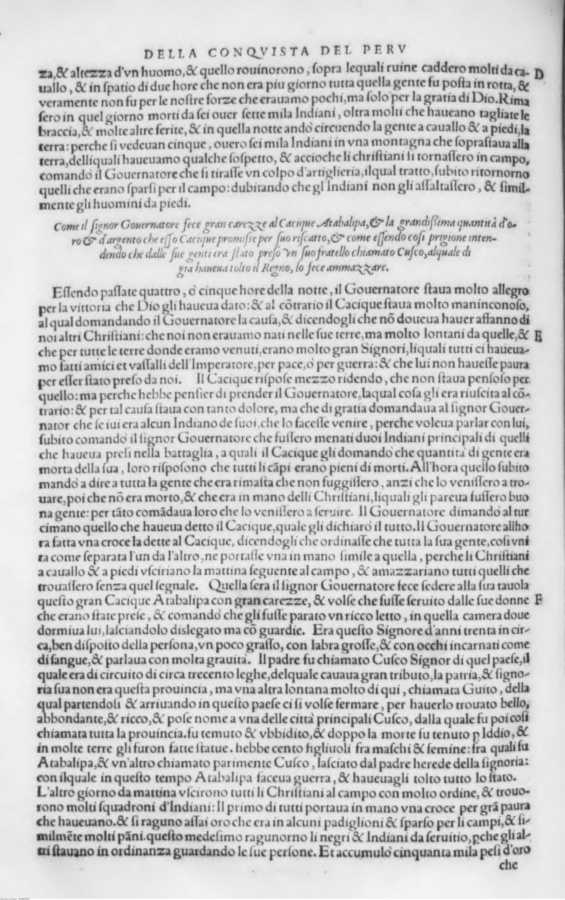 DELLA CONQVISTA DEL PERV
za,& altezza d'vn huomo,& quello rouinorono, sopra lequali ruine caddero molti da ca- D
uallo, & in spatio di due hore che non era piu giorno tutta quella gente fu posta in rotta, &
veramente non fu per le nostre forze che erauamo pochi,ma solo per la gratia di Dio.Rima
sero in quel giorno morti da sei ouer sette mila Indiani, oltra molti che haueano tagliate le
braccia,& molte altre ferite, & in quella notte andò circuendo la gente a cauallo & a piedi,la
terra: perche si vedeuan cinque , ouero sei mila Indiani in vna montagna che soprastaua alla
terra,delliquali haueuamo qualche sospetto, & accioche li christiani li tornassero in campo,
comandò il Gouernatore che si tirasse vn colpo d'artiglieria,ilqual tratto,subito ritornorno
quelli che erano sparsi per il campo: dubitando che gl'Indiani non gli assaltassero, & simil-
mente gli huomini da piedi.
Come il signor Gouernatore fece gran carezze al Cacique Atabalipa,& la grandissima quantità d'o-
ro & d'argento che esso Cacique promisse per suo riscatto,& come essendo cosi prigione inten-
dendo che dalle sue genti era stato preso vn suo fratello chiamato Cusco,alquale di
gia haueua tolto il Regno, lo fece ammazzare.
Essendo passate quattro, ò cinque hore della notte, il Gouernatore staua molto allegro
per la vittoria che Dio gli haueua dato: & al cōtrario il Cacique staua molto maninconoso,
al qual domandando il Gouernatore la causa,& dicendogli che nō doueua hauer affanno di
noi altri Christiani: che noi non erauamo nati nelle sue terre,ma molto lontani da quelle,& E
che per tutte le terre donde eramo venuti,erano molto gran Signori,liquali tutti ci haueua-
mo fatti amici et vassalli dell'Imperatore,per pace,ò per guerra: & che lui non hauesse paura
per esser stato preso da noi. Il Cacique rispose mezzo ridendo, che non staua pensoso per
quello: ma perche hebbe pensier di prender il Gouernatore,laqual cosa gli era riuscita al cō-
trario: & per tal causa staua con tanto dolore, ma che di gratia domandaua al signor Gouer-
nator che se iui era alcun Indiano de suoi,che lo facesse venire, perche voleua parlar con lui,
subito comandò il signor Gouernatore che fussero menati duoi Indiani principali di quelli
che haueua presi nella battaglia, a quali il Cacique gli domandò che quantità di gente era
morta della sua , loro risposono che tutti li cāpi erano pieni di morti. All'hora quello subito
mandò a dire a tutta la gente che era rimasta che non fuggissero , anzi che lo venissero a tro-
uare,poi che nō era morto,& che era in mano delli Christiani,liquali gli pareua fussero buo
na gente: per tāto comādaua loro che lo venissero a seruire. Il Gouernatore dimandò al tur
cimano quello che haueua detto il Cacique,quale gli dichiarò il tutto.Il Gouernatore allho
ra fatta vna croce la dette al Cacique, dicendogli che ordinasse che tutta la sua gente,cosi vni
ta come separata l'un da l'altro,ne portasse vna in mano simile a quella , perche li Christiani
a cauallo & a piedi vsciriano la mattina seguente al campo , & amazzariano tutti quelli che
trouassero senza quel segnale. Quella sera il signor Gouernatore fece sedere alla sua tauola
questo gran Cacique Atabalipa con gran carezze, & volse che fusse seruito dalle sue donne F
che erano state prese , & comandò che gli fusse parato vn ricco letto , in quella camera doue
dormiua lui,lasciandolo dislegato ma cō guardie. Era questo Signore d'anni trenta in cir-
ca,ben disposto della persona,vn poco grasso, con labra grosse,& con occhi incarnati come
di sangue,& parlaua con molta grauità. Il padre fu chiamato Cusco Signor di quel paese,il
quale era di circuito di circa trecento leghe,delquale cauaua gran tributo,la patria,& signo-
ria sua non era questa prouincia, ma vna altra lontana molto di qui , chiamata Guito, della
qual partendosi & arriuando in questo paese ci si volse fermare, per hauerlo trouato bello,
abbondante,& ricco,& pose nome a vna delle città principali Cusco, dalla quale fu poi così
chiamata tutta la prouincia.fu temuto & vbbidito,& doppo la morte fu tenuto p Iddio, &
in molte terre gli furon fatte statue. hebbe cento figliuoli fra maschi & femine: fra quali fu
Atabalipa,& vn'altro chiamato parimente Cusco , lasciato dal padre herede della signoria:
con ilquale in questo tempo Atabalipa faceua guerra, & haueuagli tolto tutto lo stato.
L'altro giorno da mattina vscirono tutti li Christiani al campo con molto ordine, & trouo-
rono molti squadroni d'Indiani: Il primo di tutti portaua in mano vna croce per grā paura
che haueuano.& si ragunò assai oro che era in alcuni padiglioni & sparso per li campi,& si-
milmēte molti pāni.questo medesimo ragunorno li negri & Indiani da seruitio,pche gli al-
tri stauano in ordinanza guardando le sue persone. Et accumulò cinquanta mila pesi d'oro
che